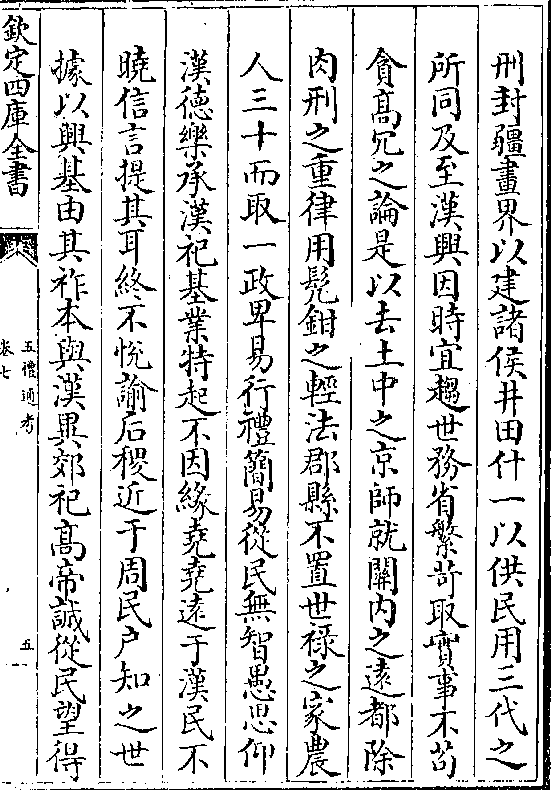 刑封疆畫界以建諸侯井田什一以供民用三代之
所同及至漢興因時宜趨世務省繁苛取實事不苟
貪髙冗之論是以去土中之京師就關內之遠都除
肉刑之重律用髠鉗之輕法郡縣不置世祿之家農
人三十而取一政卑易行禮簡易從民無智愚思仰
漢德樂承漢祀基業特起不因緣堯堯遠于漢民不
曉信言提其耳終不悅諭后稷近于周民户知之世
據以興基由其祚本與漢異郊祀髙帝誠從民望得
欽定四庫全書
五禮通考
卷七
五